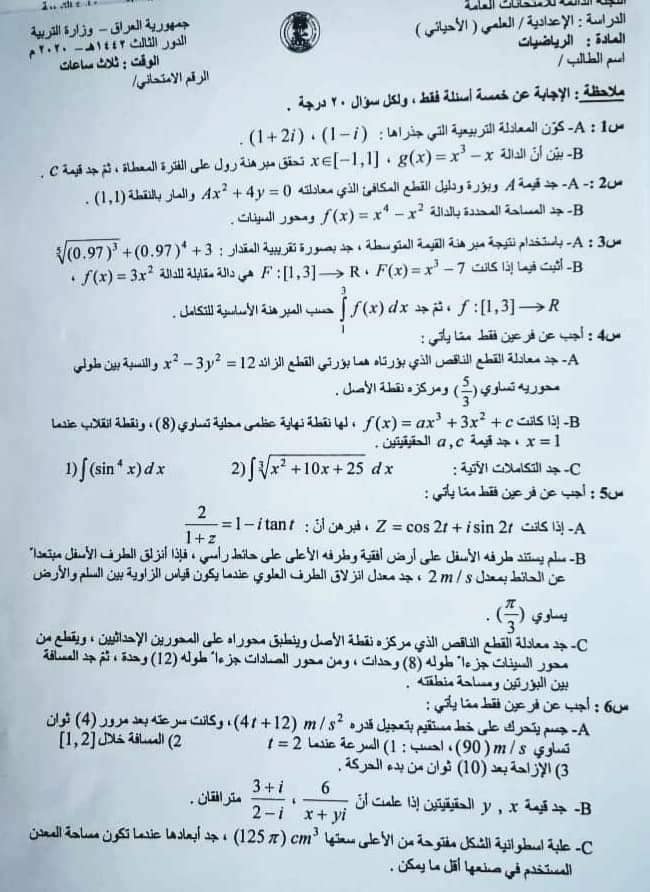 اللجنة الدائمة للامتحانات العامة
الدراسة : الإعدادية / العلمي ( الأحيائي )
المادة : الرياضيات
اسم الطالب /
جمهورية العراق – وزارة التربية
الدور الثالث ١٤٤٢هـ – ٢٠٢٠ م
الوقت : ثلاث ساعات
الرقم الامتحاني/
ملاحظة : الإجابة عن خمسة أسئلة فقط ، ولكل سؤال ٢٠ درجة .
س1 : A- كوّن المعادلة التربيعية التي جذراها : (1−i) ، (1+2i) .
B- بيّن أنّ الدالة g(x) = x³ − x ، x∈[−1,1] تحقق مبرهنة رول على الفترة المعطاة ، ثم جد قيمة C .
س2 :- A- جد قيمة A وبؤرة ودليل القطع المكافئ الذي معادلته Ax² + 4y = 0 والمار بالنقطة (1,1) .
B- جد المساحة المحددة بالدالة f(x) = x⁴ − x² ومحور السينات .
س3 : A- باستخدام نتيجة مبرهنة القيمة المتوسطة ، جد بصورة تقريبية المقدار : ⁵√(0.97)³ + (0.97)⁴ + 3
B- أثبت فيما إذا كانت F(x) = x³ − 7 ، F :[1,3] ⟶ R هي دالة مقابلة للدالة f(x) = 3x² ،
f :[1,3] ⟶ R ، ثم جد ∫₁³ f(x) dx حسب المبرهنة الأساسية للتكامل .
س4 : أجب عن فرعين فقط ممّا يأتي :
A- جد معادلة القطع الناقص الذي بؤرتاه هما بؤرتي القطع الزائد x² − 3y² = 12 والنسبة بين طولي
محوريه تساوي (5/3) ومركزه نقطة الأصل .
B- إذا كانت f(x) = ax³ + 3x² + c ، لها نقطة نهاية عظمى محلية تساوي (8) ، ونقطة انقلاب عندما
x = 1 ، جد قيمة a , c الحقيقيتين .
C- جد التكاملات الآتية : 1) ∫(sin⁴ x) dx 2) ∫∛(x² + 10x + 25) dx
س5 : أجب عن فرعين فقط ممّا يأتي :
A- إذا كانت Z = cos 2t + i sin 2t ، فبرهن أنّ : 2/(1+z) = 1 − i tan t
B- سلم يستند طرفه الأسفل على أرض أفقية وطرفه الأعلى على حائط رأسي ، فإذا أنزلق الطرف الأسفل مبتعداً
عن الحائط بمعدل 2 m / s ، جد معدل انزلاق الطرف العلوي عندما يكون قياس الزاوية بين السلم والأرض
يساوي (π/3) .
C- جد معادلة القطع الناقص الذي مركزه نقطة الأصل وينطبق محوراه على المحورين الإحداثيين ، ويقطع من
محور السينات جزءاً طوله (8) وحدات ، ومن محور الصادات جزءاً طوله (12) وحدة ، ثم جد المسافة
بين البؤرتين ومساحة منطقته .
س6 : أجب عن فرعين فقط ممّا يأتي :
A- جسم يتحرك على خط مستقيم بتعجيل قدره (4t + 12) m / s² ، وكانت سرعته بعد مرور (4) ثوان
تساوي (90) m / s ، احسب : 1) السرعة عندما t = 2 2) المسافة خلال [1,2]
3) الإزاحة بعد (10) ثوان من بدء الحركة .
B- جد قيمة x , y الحقيقيتين إذا علمت أنّ 6/(x + yi) ، (3+i)/(2−i) مترافقان .
C- علبة اسطوانية الشكل مفتوحة من الأعلى سعتها (125 π) cm³ ، جد أبعادها عندما تكون مساحة المعدن
المستخدم في صنعها أقل ما يمكن .